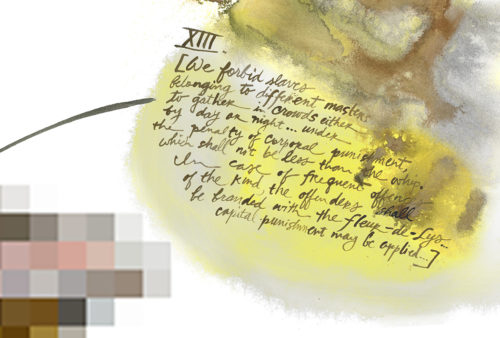 XIII.
[We forbid slaves
belonging to different masters
to gather in crowds either
by day or night... under
the penalty of corporal punishment
which shall not be less than the whip.
In case of frequent offenses
of the kind, the offenders shall
be branded with the fleur-de-lys...
capital punishment may be applied...]